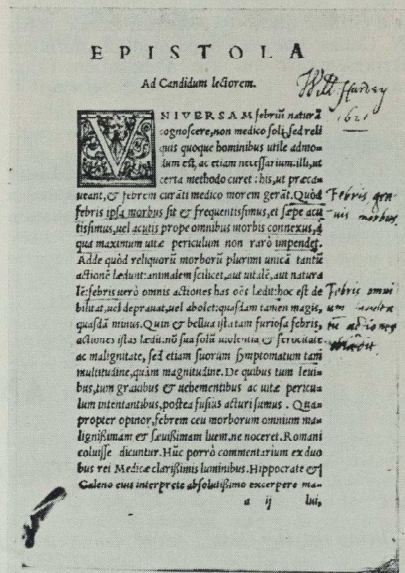 EPISTOLA
Ad Candidum lectorem.
Will Harvey
VNIVERSAM febriũ naturã
cognoscere, non medico soli, sed reli
quis quoque hominibus utile admo-
dum est, ac etiam necessarium. illi, ut
certa methodo curet: his, ut præca-
ueant, & febrem curãti medico morem gerãt. Quòd
febris ipsa morbus sit & frequentissimus, et sæpe acu
tissimus, uel acutis prope omnibus morbis connexus, à
qua maximum uitæ periculum non rarò impendet.
Febris gra-
uis morbus.
Adde quòd reliquorũ morborũ plurimi unicã tantũ
actionẽ lædunt: animalem scilicet, aut uitalẽ, aut natura
lẽ: febris uerò omnis actiones has oẽs lædit: hoc est de
bilitat, uel deprauat, uel abolet: quasdam tamen magis,
quasdã minus. Quin & bellua istatam furiosa febris,
Febris omni
actiones istas lædit. nõ sua solũ uiolentia & ferocitate
ac malignitate, sed etiam suorum symptomatum tam
multitudine, quàm magnitudine. De quibus tum leui-
bus, tum grauibus & uehementibus ac uitæ pericu-
lum intentantibus, postea fusius acturi sumus. Qua-
propter opinor, febrem ceu morborum omnium ma-
lignißimam et sæuißimam luem, ne noceret. Romani
coluisse dicuntur. Hũc porrò commentarium ex duo
bus rei Medicæ clarißimis luminibus. Hippocrate &
Galeno eius interprete absolutißimo excerpere ma-
a ij lui,